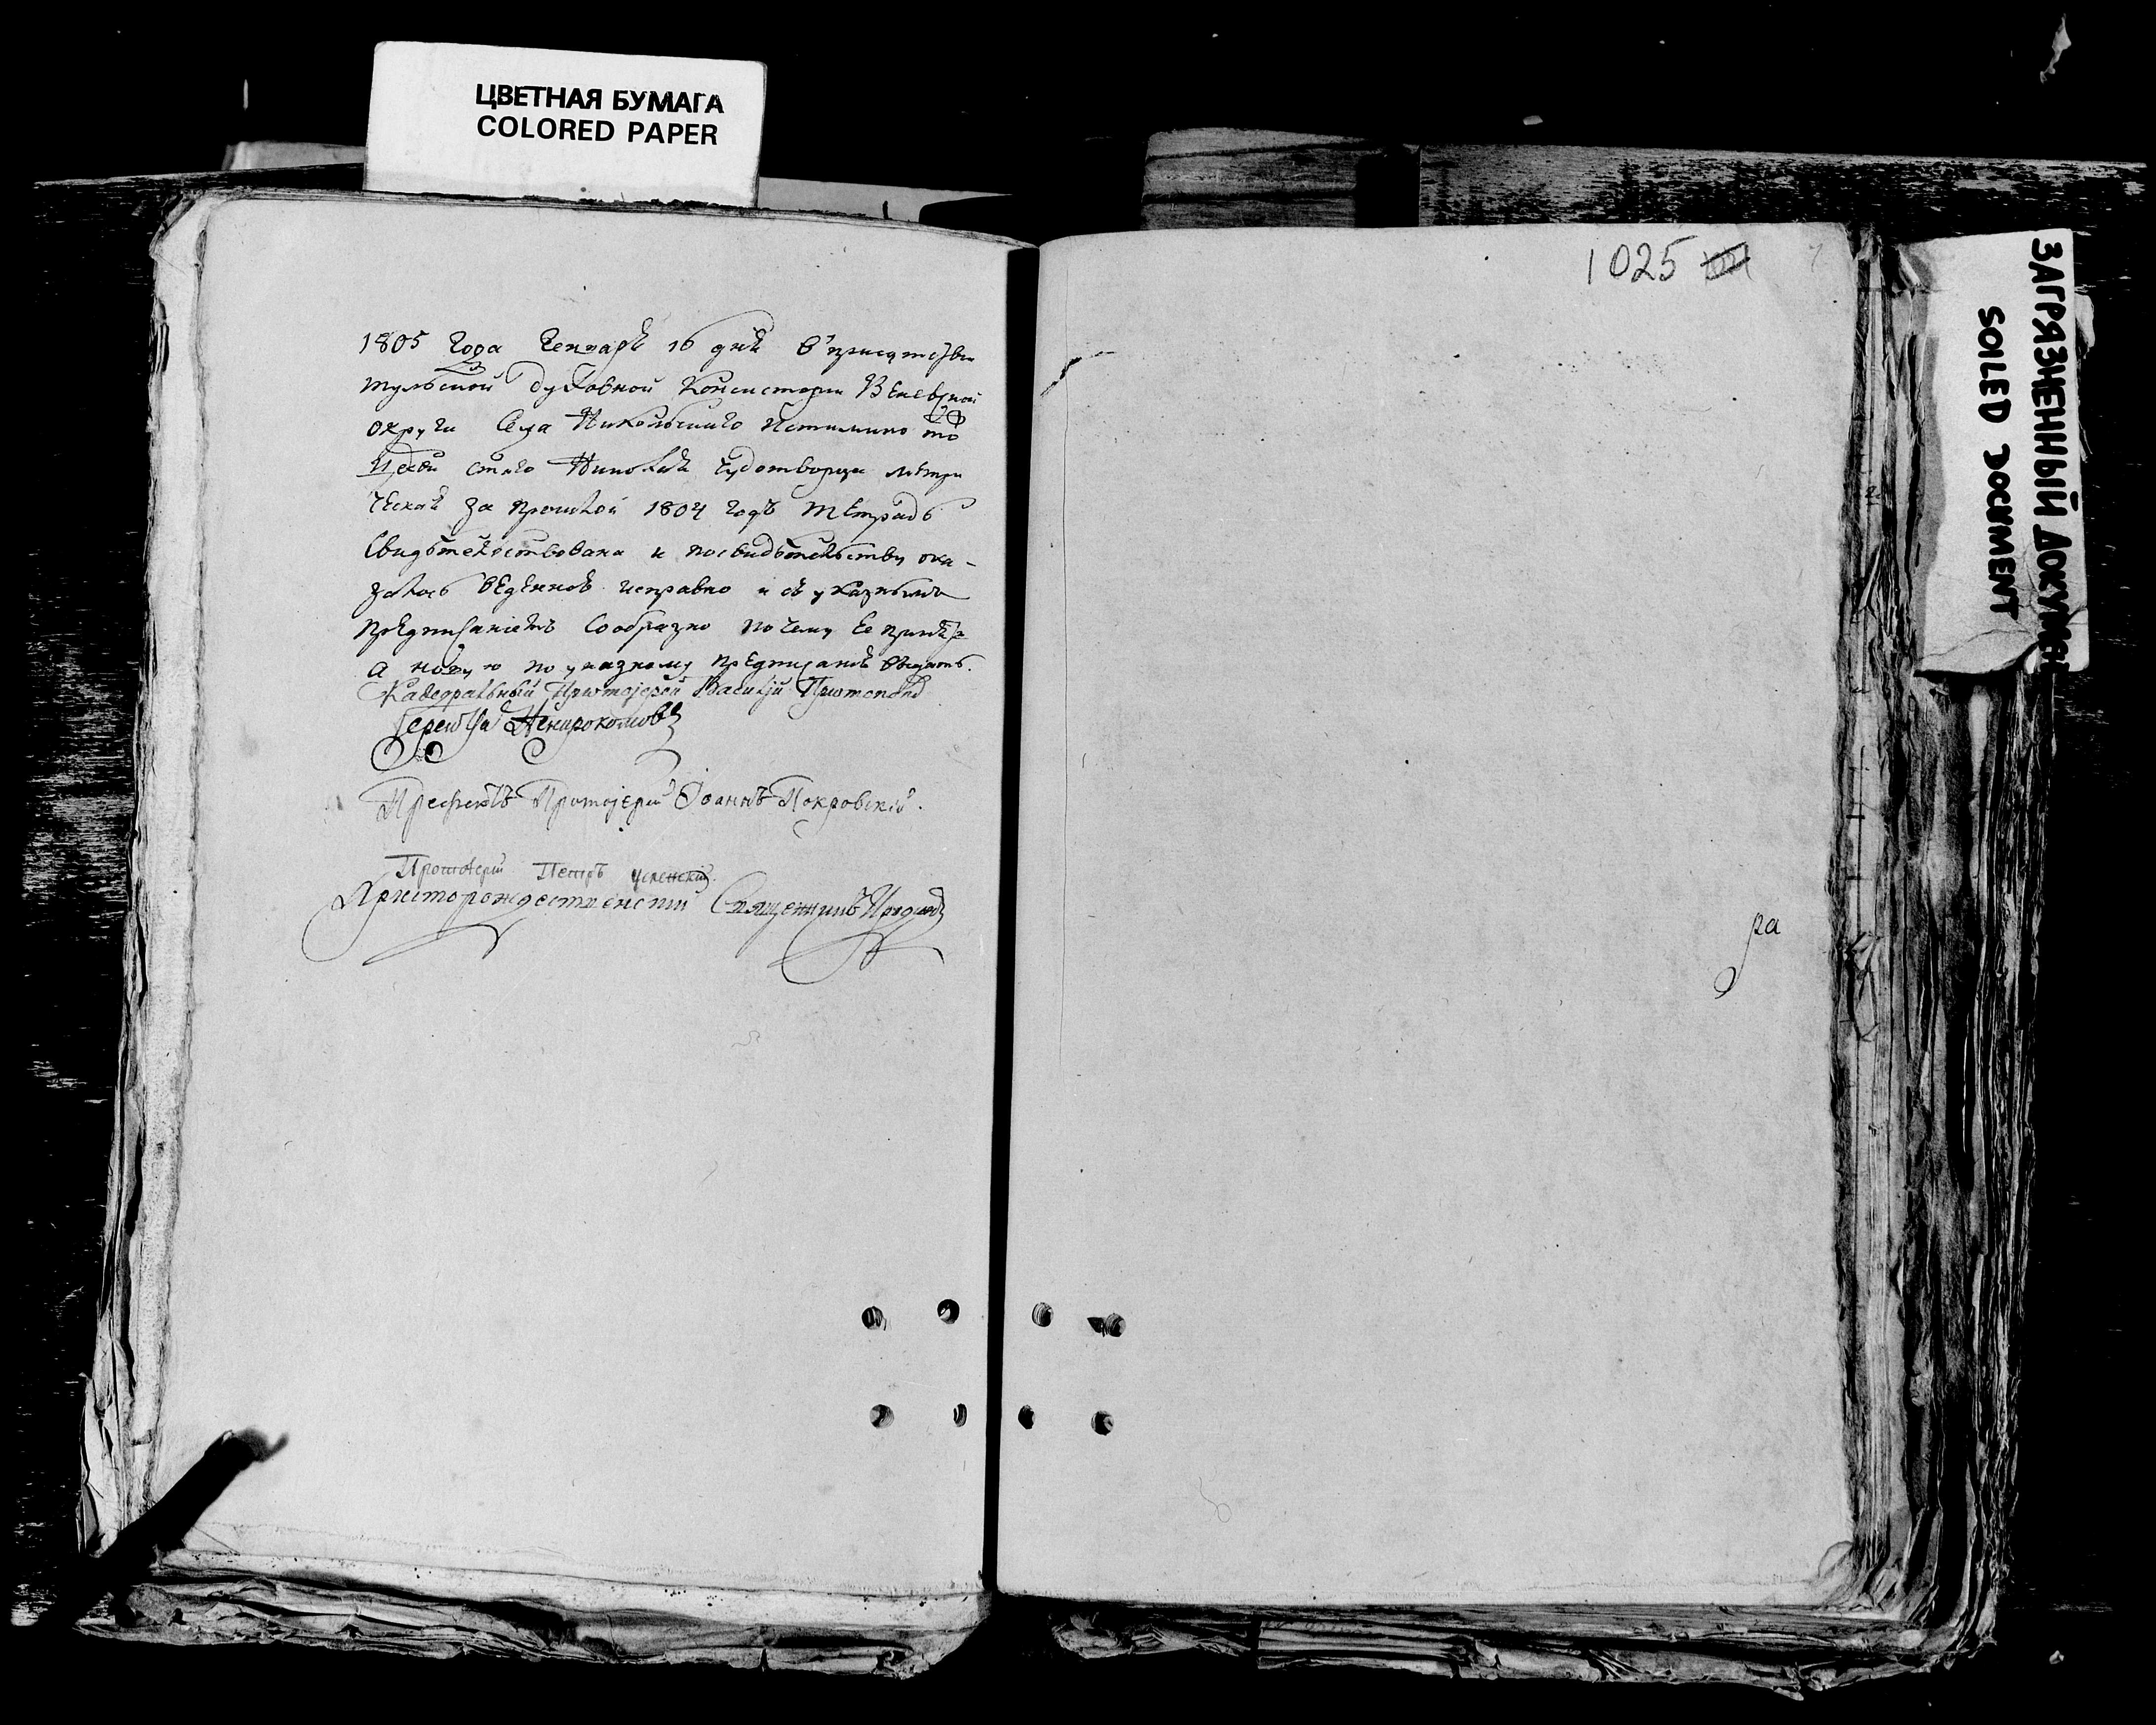 ЦВЕТНАЯ БУМАГА
COLORED PAPER
1805 года Генваря 16 дня в присутствии
тульской духовной Консистории Веневской
округи села Никольского
церкви стаго Николая чудотворца метри
ческая за прошлой 1804 годъ тетрадь
свидѣтельствована и по свидѣтельству ока-
залась веденною исправно и съ указнымъ
предписаніемъ сообразно почему ее
а новую по указному предписанию выдать.
Кафедральный Протоіерей Василій Протопоповъ
Префектъ Протоіерей Іоаннъ Покровскій.
Протоіерей Петръ Успенский
Христорождественский Священникъ
1025
ра
ЗАГРЯЗНЕННЫЙ ДОКУМЕН
SOILED DOCUMENT